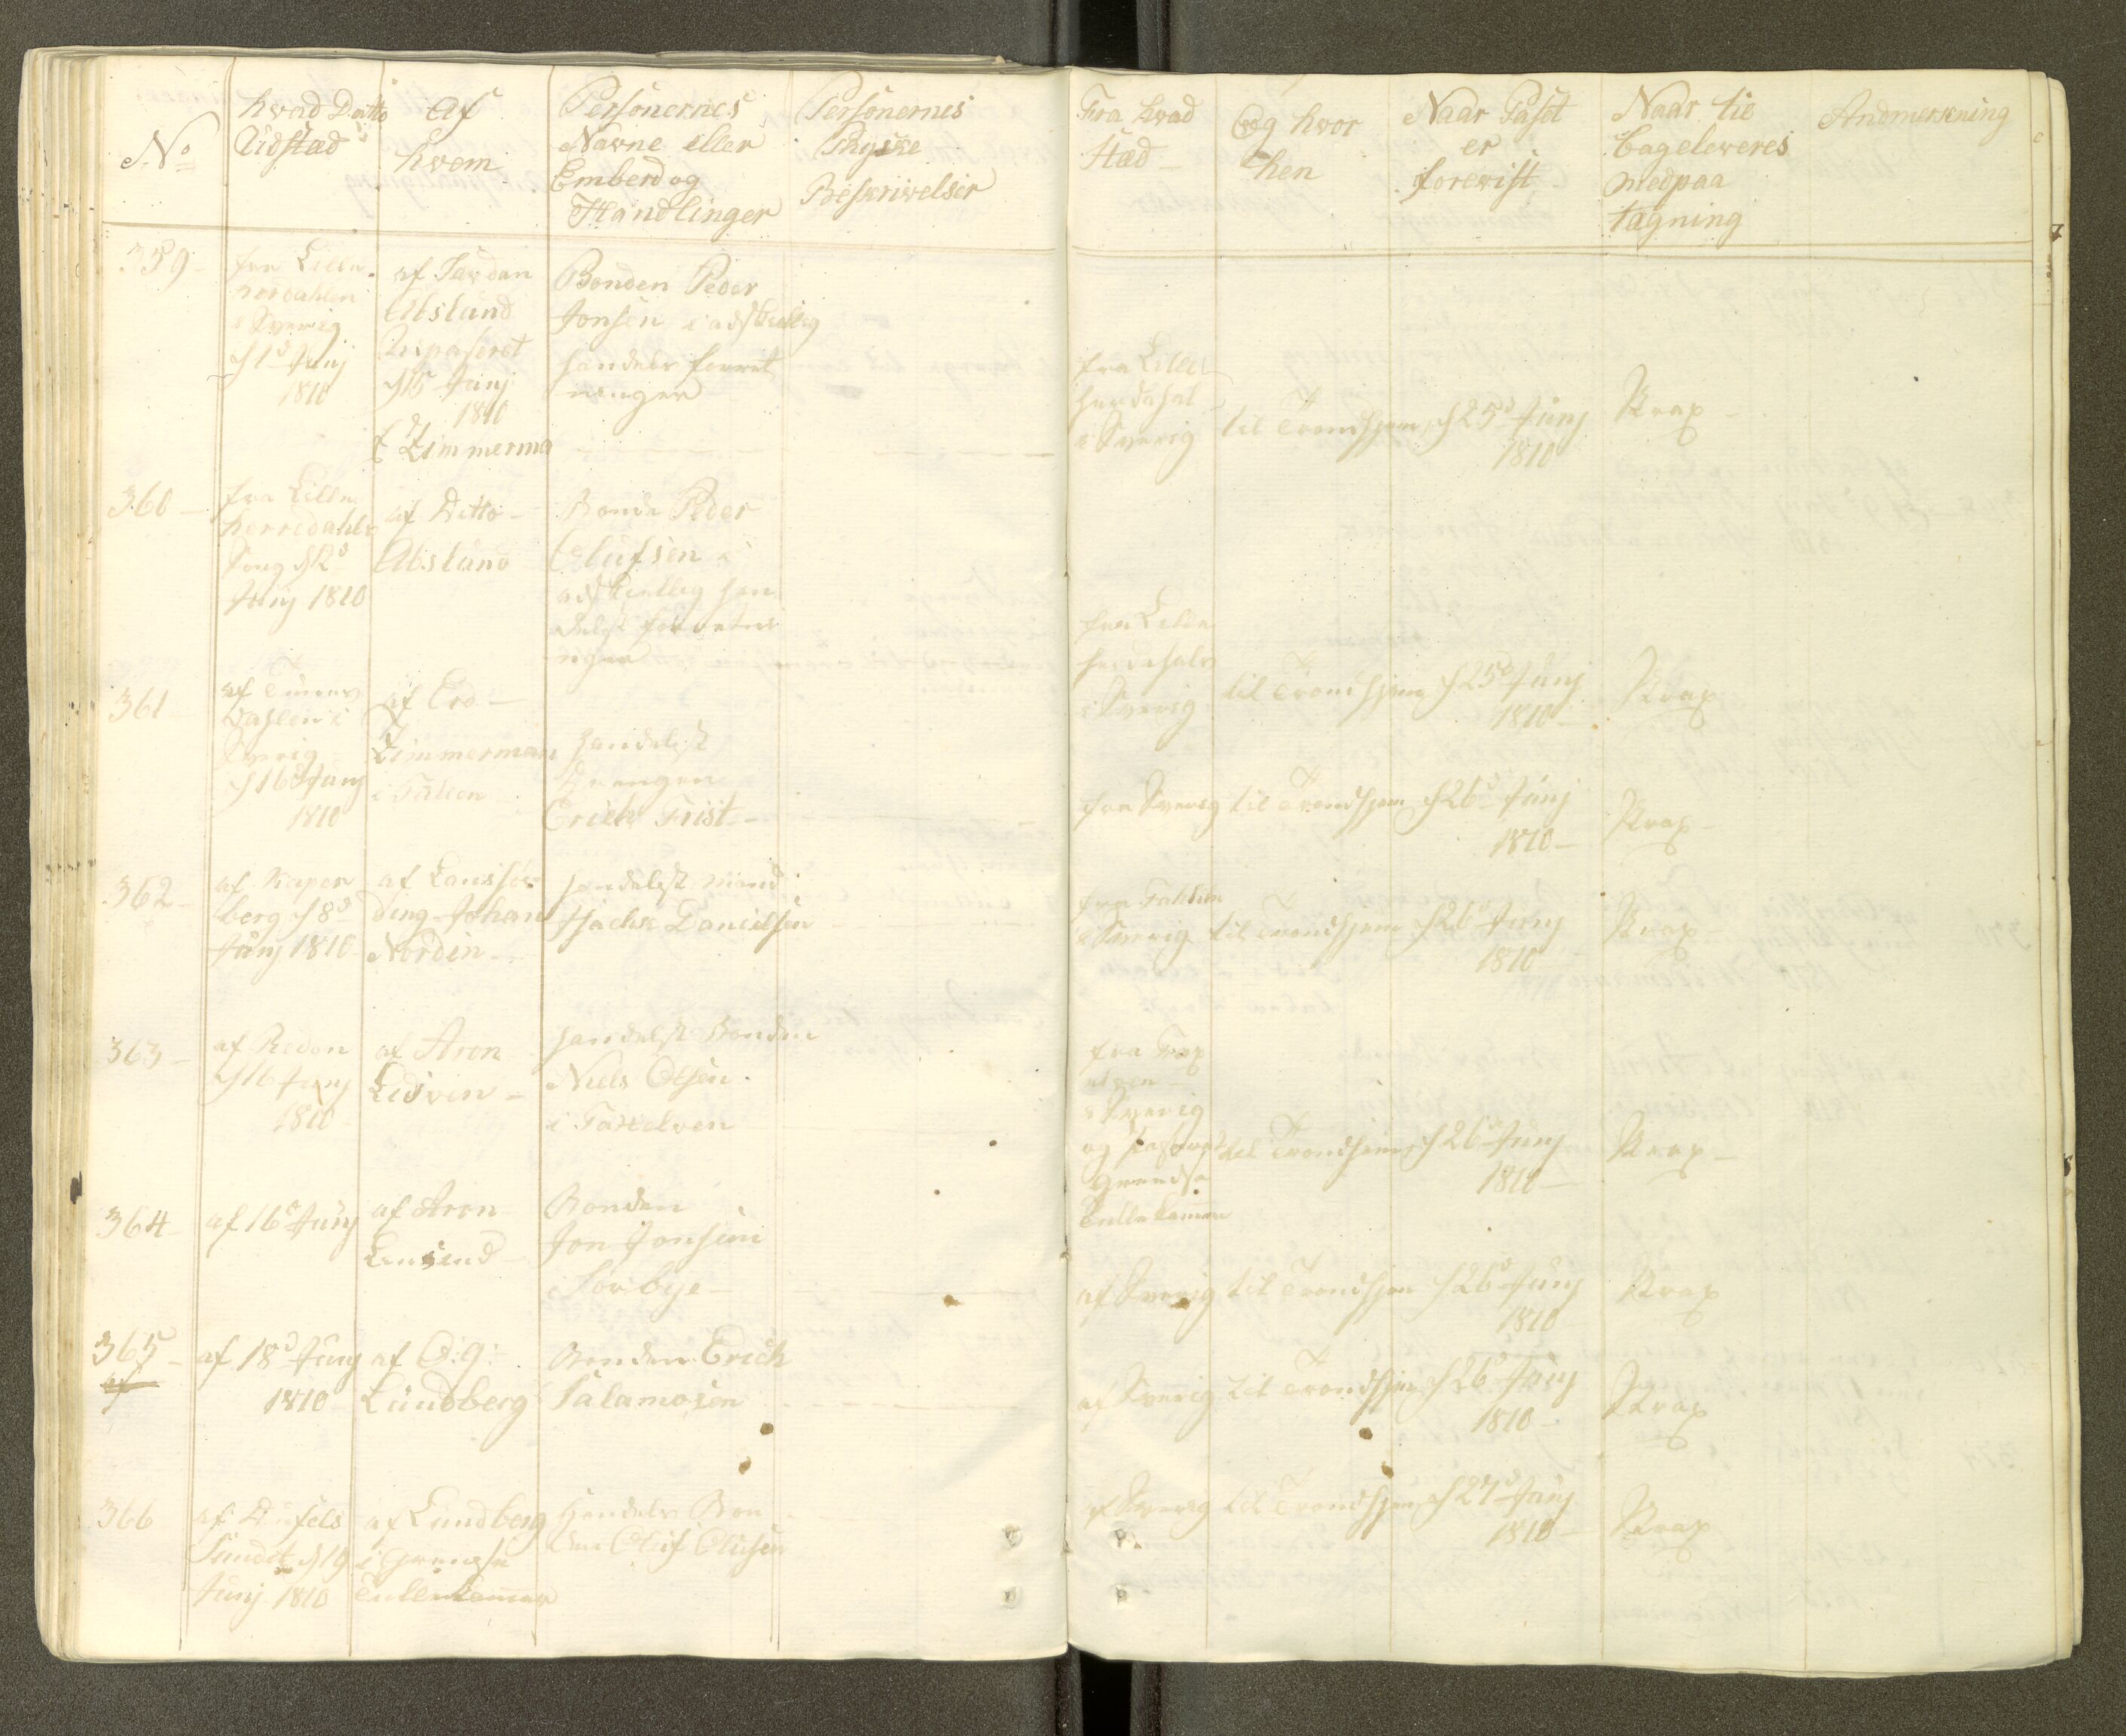 No
hvad Datto
Udstæd
af
hvem
Personernes
Navne eller
Embed og
Handlinger
Personernes
Physke
Beskrivelser
Fra hvad
stæd
Og hvor
hen
Naar Paset
er
forevist
Naar til
bageleveres
med paa
tægning
Andmerkning
359
fra Lille
herdahlen
i Sverig
d 1d Juny
1810
af
Abslund
d 15 Juny
1810
Zimmerma
Bonden Peder
Jonsen i adskillig
handels forret
ninger
fra Lille
herdahl
i Sverig
til Trondhjem
d 25d Juny
1810
Strax
360
fra Lille
herredahl
d 2d
Juny 1810
af Ditto
Abslund
Bonde Peder
Olufsen i
adskillig han
delsk forretni
nger
fra Lille
herdahls
i Sverig
til Trondhjem
d 25d Juny
1810
Strax
361
af
Dahlen i
Sverig
d 16d Juny
1810
af
Zimmerman
i Fahlen
handelsk
Drengen
Erich Frist
fra Sverig
til Trondhjem
d 26d Juny
1810
Strax
362
af Koper
berg d 8d
Juny 1810
af Landshøv
ding Johan
Nordin
handelsk mand
Hack Danielsen
fra Fahlun
i Sverig
til Trondhjem
d 26d Juny
1810
Strax
363
af Reden
d 16 Juny
1810
af Aron
Lidven
handelsk Bonden
Niels Olsen
i Faxelven
fra Fax
elven
i Sverig
og paseret
Grendse
Tullkammer
til Trondhjem
d 26d Juny
1810
Strax
364
af 16d Juny
af Aron
Bonden
Jon Jonsen
i Sorbye
af Sverig
til Trondhjem
d 26d Juny
1810
Strax
365
af
af 18d Juny
1810
af O: g:
Lündberg
Bonden Erich
Salamosen
af Sverig
til Trondhjem
d 26d Juny
1810
Strax
366
af Dufels
Sundet d 19
Juny 1810
af Lundberg
i Grendse
Tullkammer
Handels Bon
den Oluf Olusen
af Sverig
til Trondhjem
d 27d Juny
1810
Strax